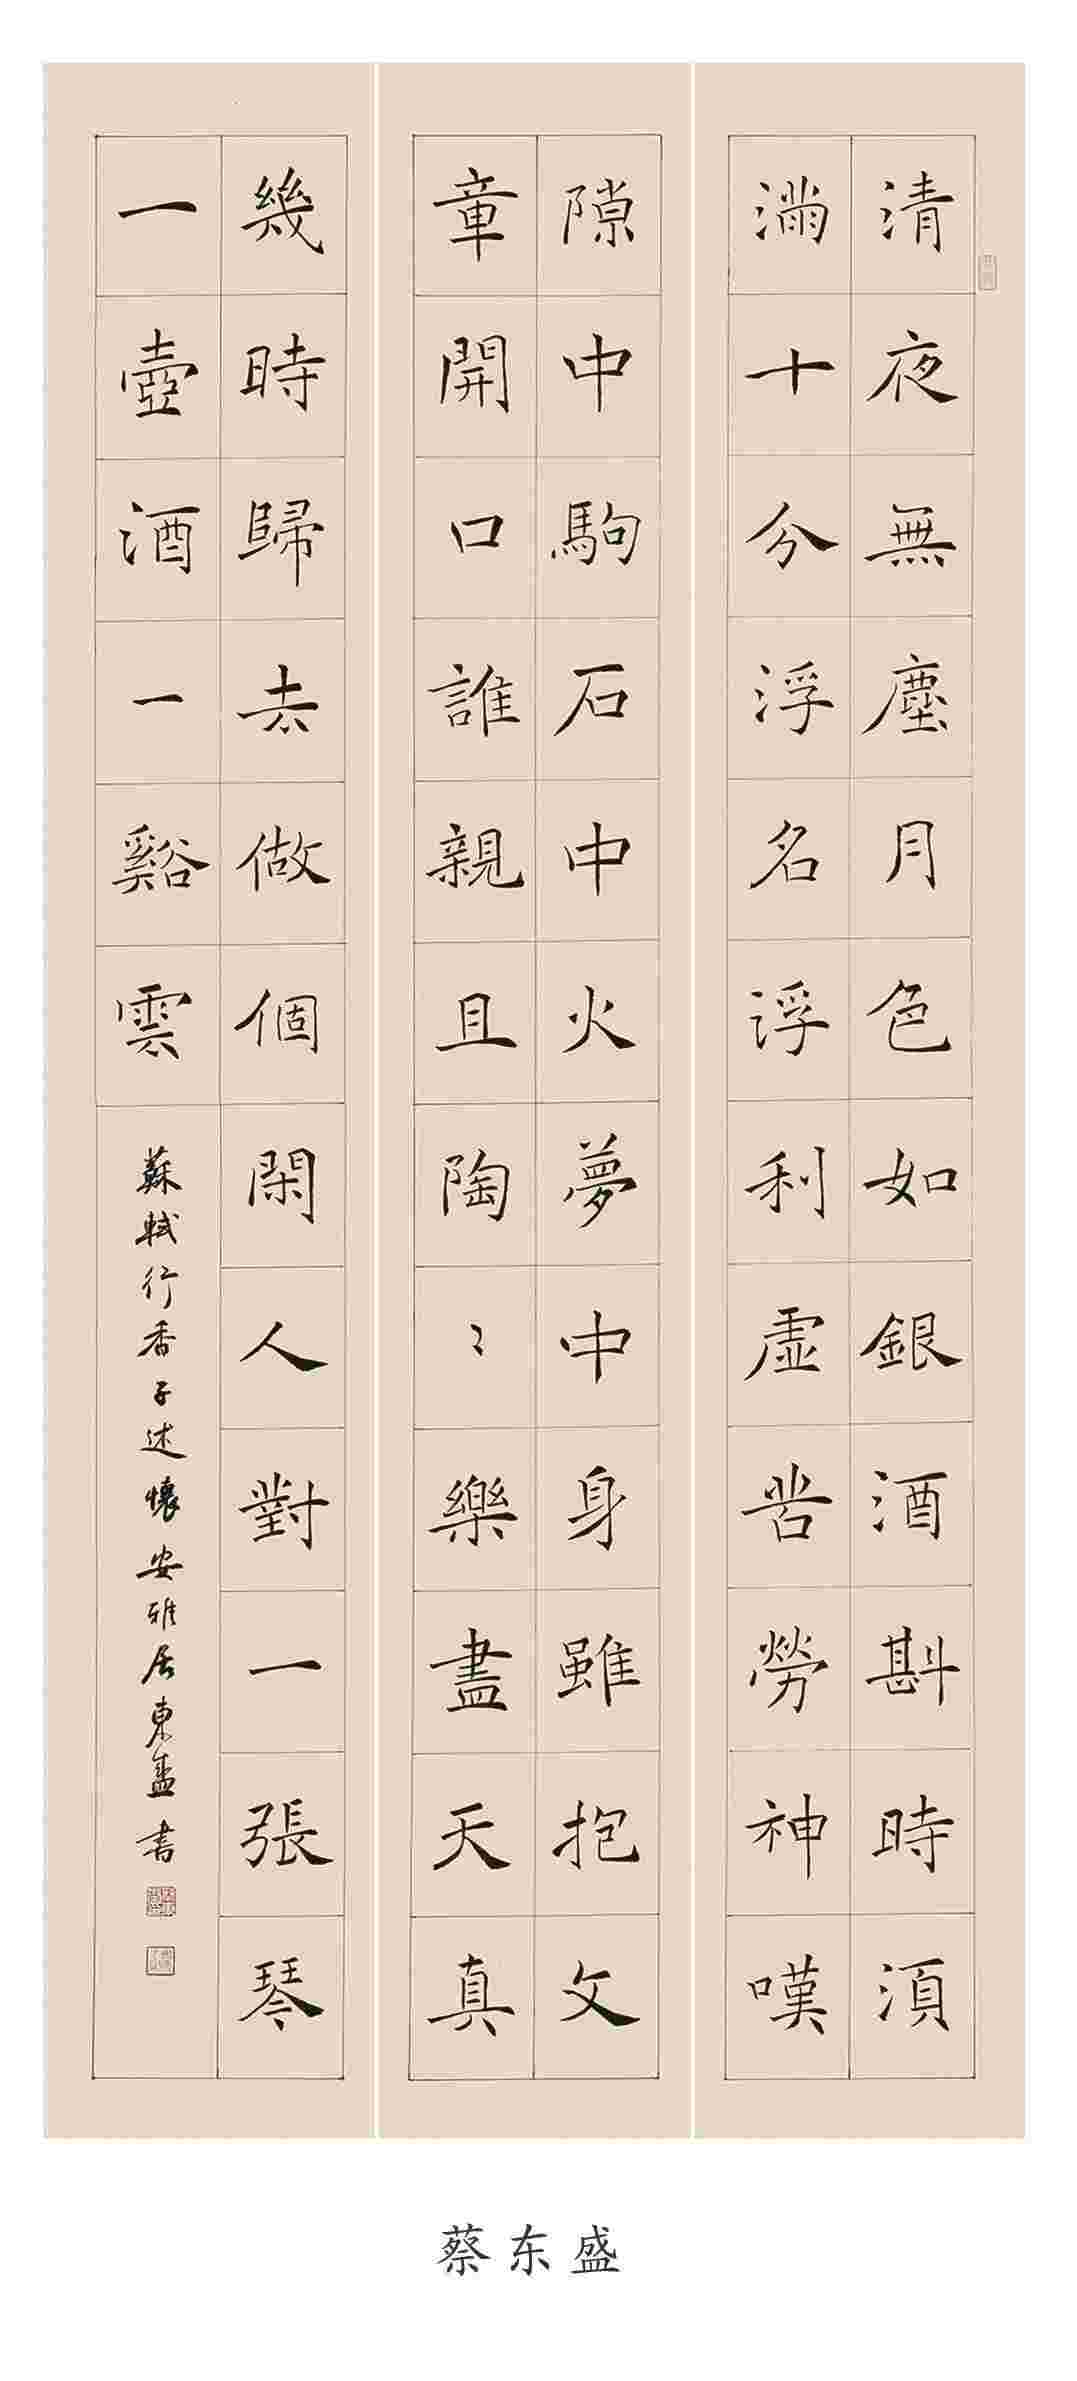 清夜無塵月色如銀酒斟時須
滿十分浮名浮利虛苦勞神嘆
隙中駒石中火夢中身雖抱文
章開口誰親且陶〻樂盡天真
幾時歸去做個閑人對一張琴
一壺酒一谿雲
蘇軾行香子述懷安雅居東盛書
蔡东盛